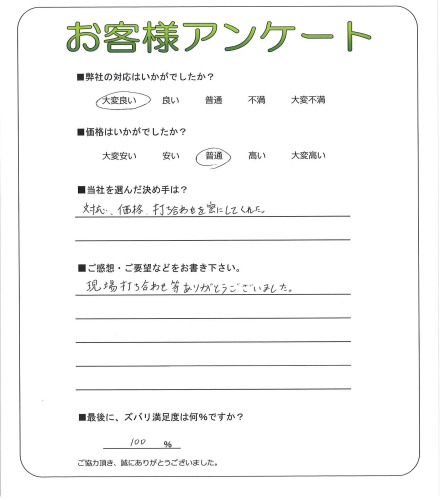 お客様アンケート
■弊社の対応はいかがでしたか?
大変良い 良い 普通 不満 大変不満
■価格はいかがでしたか?
大変安い 安い 普通 高い 大変高い
■当社を選んだ決め手は?
対応、価格、打ち合わせを密にしてくれた。
■ご感想・ご要望などをお書き下さい。
現場打ち合わせ等ありがとうございました。
■最後に、ズバリ満足度は何%ですか?
100 %
ご協力頂き、誠にありがとうございました。